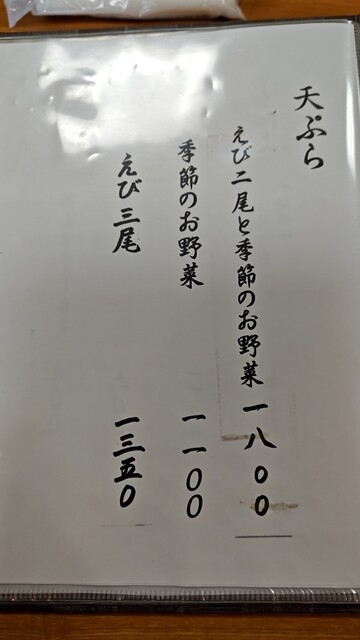 天ぷら
えび二尾と季節のお野菜 一八〇〇
季節のお野菜 一一〇〇
えび三尾 一三五〇